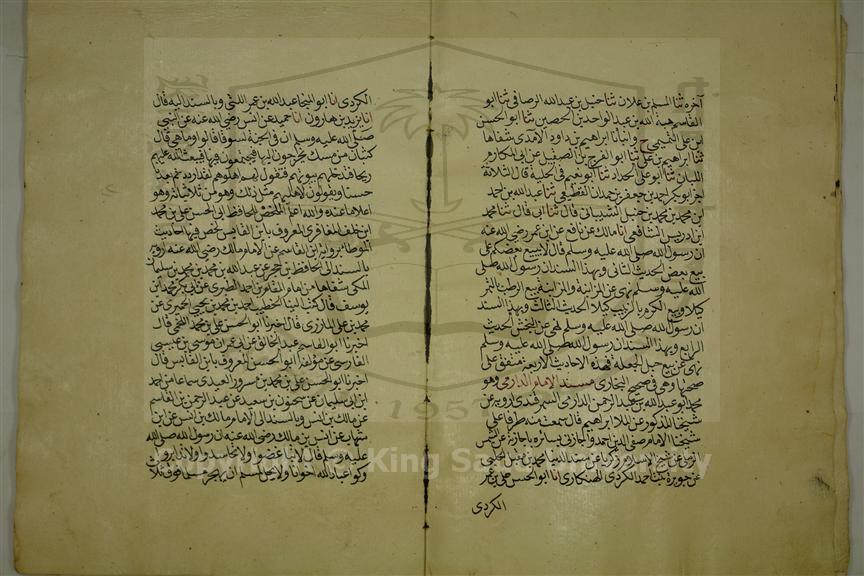 آخره ثنا المسلم بن علان ثنا حنبل بن عبد الله الرصافي ثنا ابو
القاسم هبة الله بن عبد الواحد بن الحصين ثنا ابو الحسن
ابن علي التميمي ح وانبأنا ابراهيم بن داود الامدي شفاها
ثنا ابراهيم بن علي ثنا ابو الفرج بن الصيقل عن ابي المكارم
اللبان ثنا ابو علي الحداد ثنا ابو نعيم في الحلية قال الثلاثة
ابو بكر احمد بن جعفر بن حمدان القطيعي ثنا عبد الله بن احمد
ابن محمد بن حنبل الشيباني قال ثنا ابي قال ثنا محمد
ابن ادريس الشافعي انا مالك عن نافع عن ابن عمر رضي الله عنه
ان رسول الله صلى الله عليه وسلم قال لا يبيع بعضكم على
بيع بعض الحديث الثاني وبهذا السند ان رسول الله صلى
الله عليه وسلم نهى عن المزابنة والمزابنة بيع الرطب بالتمر
كيلا وبيع الكرم بالزبيب كيلا الحديث الثالث وبهذا السند
ان رسول الله صلى الله عليه وسلم نهى عن النجش الحديث
الرابع وبهذا السند ان رسول الله صلى الله عليه وسلم
نهى عن بيع حبل الحبلة فهذه الاحاديث الاربعة متفق على
صحتها وهي في صحيح البخاري مسند الامام الدارمي وهو
محمد ابو عبد الله بن عبد الرحمن الدارمي السمرقندي ارويه عن
شيخنا المذكور عن الملا ابراهيم قال سمعت منه طرفا على
شيخنا الامام صفي الدين احمد واجازني بسائره باجازته عن الشمس
الرملي عن شيخ الاسلام زكريا عن مسند الدنيا محمد بن مقبل الحلبي
عن جويرية بنت احمد الكردي الهكاري انا ابو الحسن علي بن عمر
الكردي
الكردي انا ابو المنجا عبد الله بن عمر اللتي وبالسند اليه قال
انا يزيد بن هارون انا حميد عن انس رضي الله عنه عن النبي
صلى الله عليه وسلم ان في الجنة لسوقا قالوا وما هي قال
كثبان من مسك يخرجون اليها فيجتمعون فيها فيبعث الله عليهم
ريحا فتدخلهم بيوتهم فتقول لهم اهلوهم لقد ازددتم بعدنا
حسنا ويقولون لاهليهم مثل ذلك وهو من ثلاثياته وهو
اعلاها عنده والله اعلم الملخص للحافظ ابي الحسن علي بن محمد
ابن خلف المعافري المعروف بابن القابس لخص فيها احاديث
الموطا برواية ابن القاسم عن الامام مالك رضي الله عنه ارويه
بالسند الى الحافظ بن حجر عن عبد الله بن محمد بن محمد بن سليمان
المكي شفاها عن امام المقام بن احمد الطبري عن ابي بكر محمد بن
يوسف قال كتب الينا الخطيب احمد بن محمد بن يحيى الحميري عن
محمد بن علي المازري قال اخبرنا ابو الحسن علي بن محمد اللخمي قال
اخبرنا ابو القاسم عبد الخالق عن ابي عمران موسى بن عيسى
الفارسي عن مؤلفه ابو الحسن المعروف بابن القابس قال
اخبرنا ابو الحسن علي بن محمد بن مسرور العبدي سماعا من احمد
ابن ابي سليمان عن سحنون بن سعيد عن عبد الرحمن بن القاسم
عن مالك بن انس وبالسند الى الامام مالك بن انس عن ابن
شهاب عن انس بن مالك رضي الله عنه ان رسول الله صلى الله
عليه وسلم قال لا تباغضوا ولا تحاسدوا ولا تدابروا
وكونوا عباد الله اخوانا ولا يحل لمسلم ان يهجر مسلما فوق ثلاث
1957
King Saud University